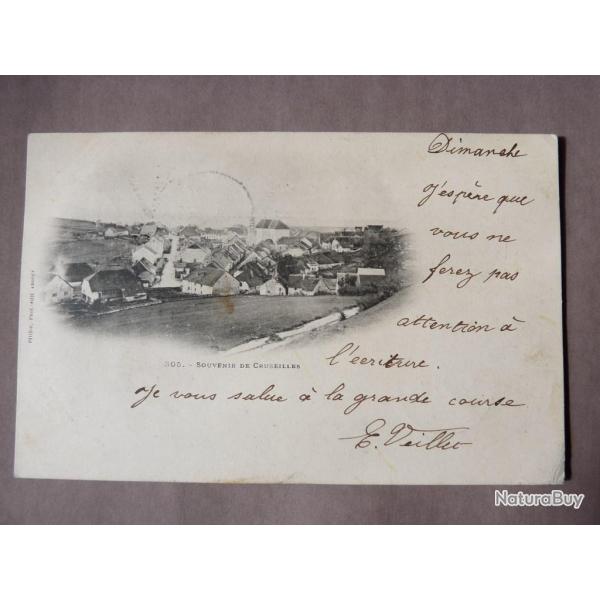 Dimanche
J'espère que
vous ne
ferez pas
attention à
l'écriture.
Je vous salue à la grande course
E. Veillet
305. - SOUVENIR DE CRUSEILLES
NaturaBuy